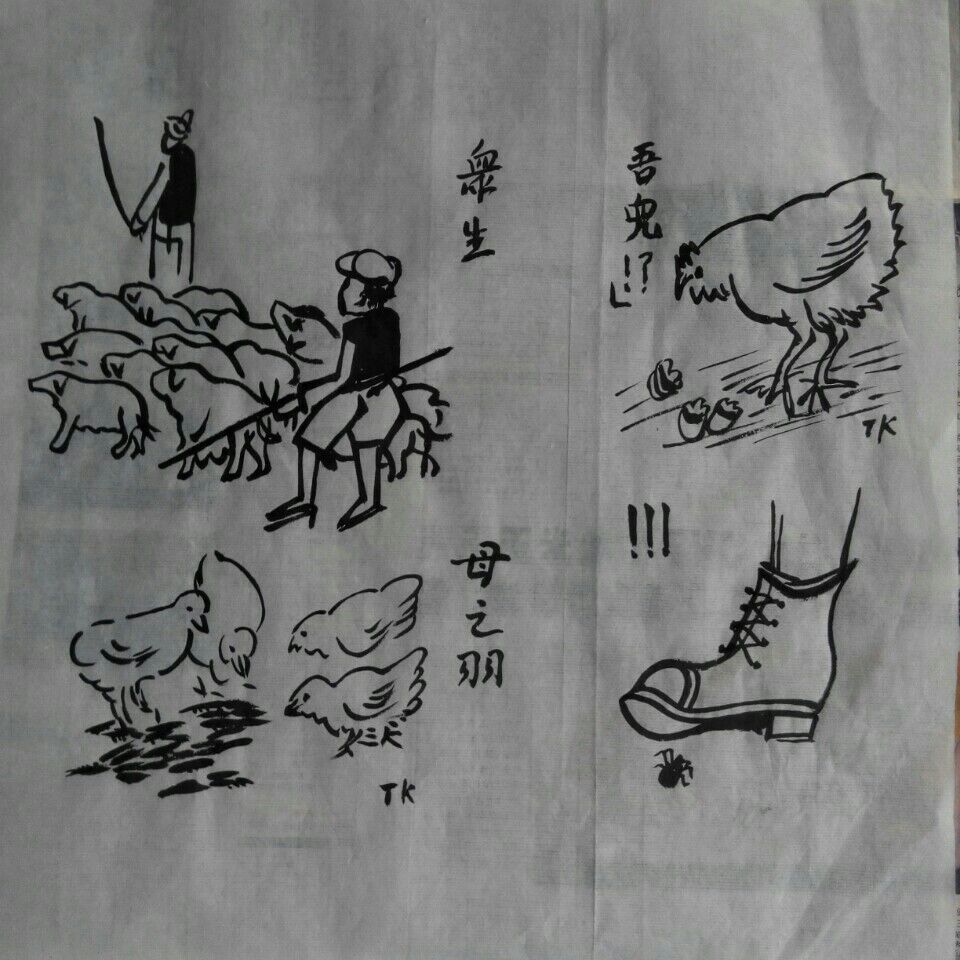 吾兒!?」
TK
衆生
!!!
母之羽
TK